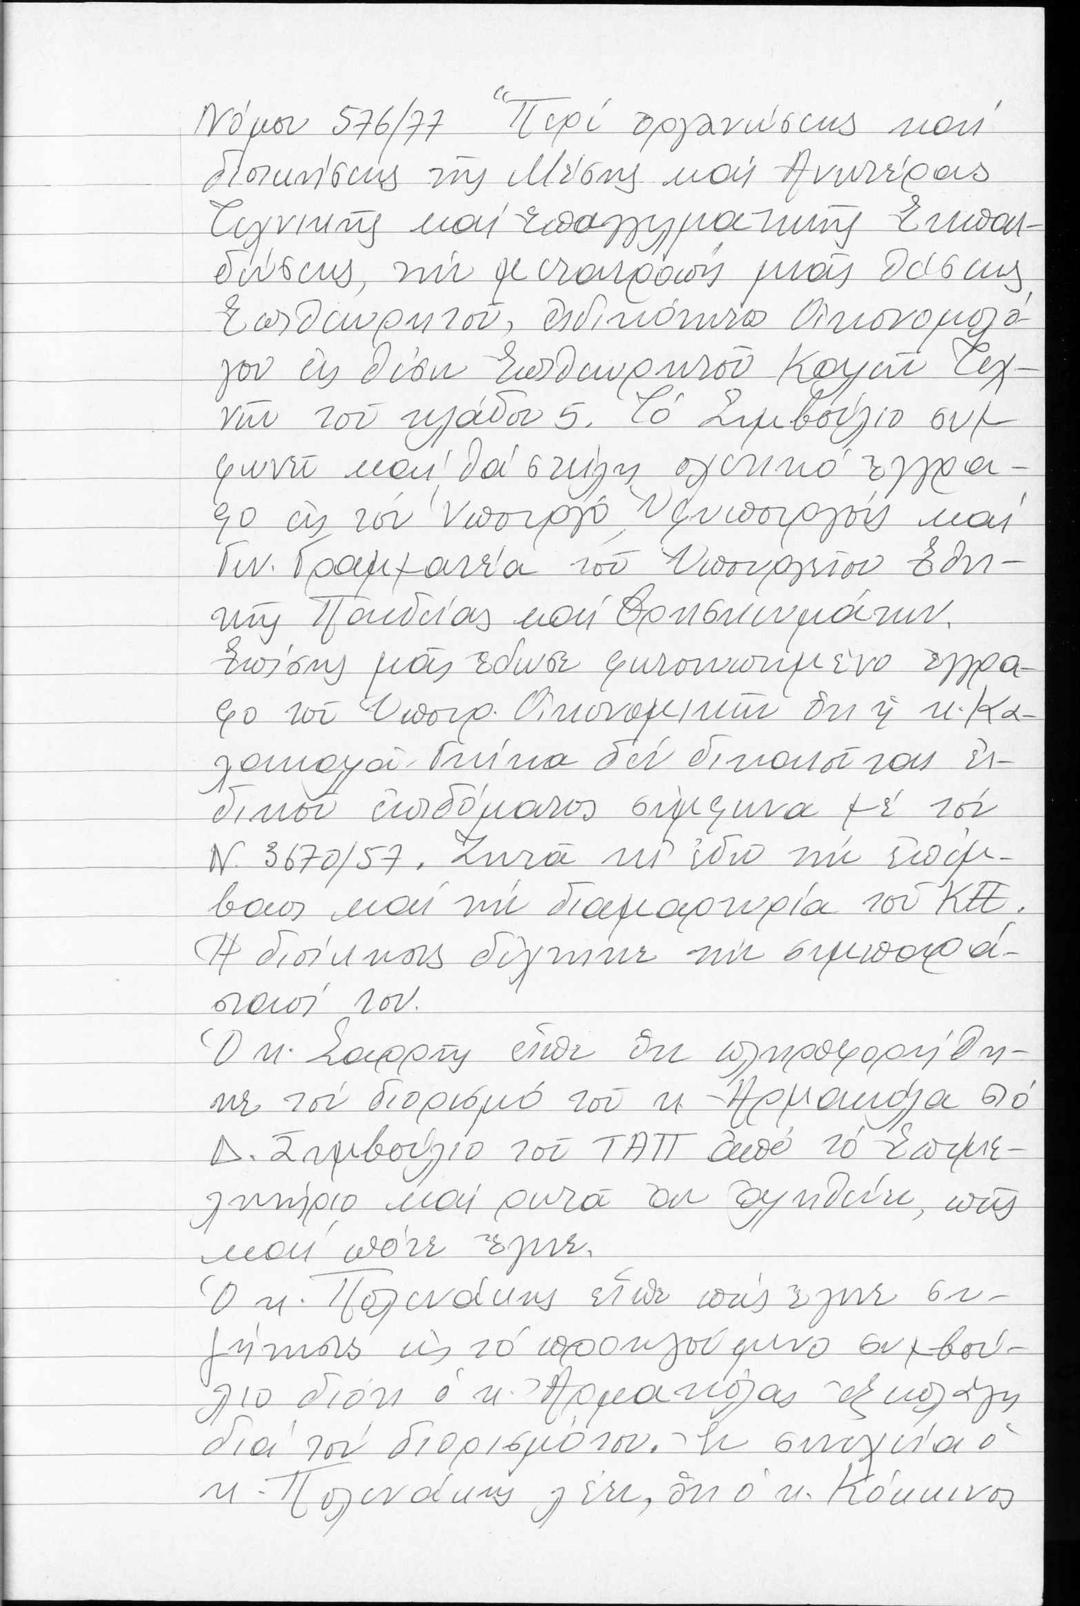 Νόμου 576/77 "Περί ὀργανώσεως καί
διοικήσεως τῆς Μέσης καί Ἀνωτέρας
Τεχνικῆς καί Ἐπαγγελματικῆς Ἐκπαι-
δεύσεως, τήν μετατροπή μιᾶς θέσεως
Ἐπιθεωρητοῦ, εἰδικότητα Οἰκονομολό-
γου εἰς θέση Ἐπιθεωρητοῦ Καλῶν Τεχ-
νῶν τοῦ κλάδου 5. Τό Συμβούλιο συμ
φωνεῖ καί θά στείλη σχετικό ἔγγρα-
φο εἰς τόν Ὑπουργό, Ὑφυπουργούς καί
Γεν. Γραμματέα τοῦ Ὑπουργείου Ἐθνι-
κῆς Παιδείας καί Θρησκευμάτων.
Ἐπίσης μᾶς ἔδωσε φωτοτυπημένο ἔγγρα-
φο τοῦ Ὑπουρ. Οἰκονομικῶν ὅτι ἡ κ. Κα-
δέν δικαιοῦται εἰ-
δικοῦ ἐπιδόματος σύμφωνα μέ τόν
Ν. 3670/57. Ζητᾶ κι' ἐδῶ τήν ἐπέμ-
βαση καί τήν διαμαρτυρία τοῦ ΚΠ.
Ἡ διοίκησις δέχτηκε τήν συμπαρά-
στασί του.
Ὁ κ. Σαφρῆς εἶπε ὅτι πληροφορήθη-
κε τόν διορισμό τοῦ κ Ἀρμακόλα στό
Δ. Συμβούλιο τοῦ ΤΑΠ ἀπό τό Ἐπιμε-
λητήριο καί ρωτᾶ ἄν ἀληθεύει, πῶς
καί πότε ἔγινε.
Ὁ κ. Πολενάκης εἶπε πώς ἔγινε συ-
ζήτησις εἰς τό προηγούμενο συμβού-
λιο διότι ὁ κ. Ἀρμακόλας ἐξεπλάγη
διά τόν διορισμό του. Ἐν συνεχεία ὁ
κ. Πολενάκης λέει, ὅτι ὁ κ. Κόκκινος